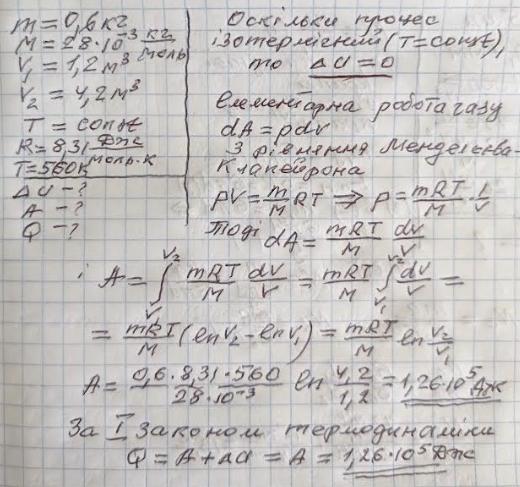 m = 0,6 кг
M = 28·10⁻³ кг/моль
V₁ = 1,2 м³
V₂ = 4,2 м³
T = const
R = 8,31 Дж/моль·К
T = 560К
ΔU - ?
A - ?
Q - ?
Оскільки процес
ізотермічний (T = const),
то ΔU = 0
Елементарна робота газу
dA = pdV
З рівняння Менделєєва-
Клапейрона
pV = m/M RT ⇒ p = mRT/M 1/V
Тоді dA = mRT/M dV/V
і A = ∫_{V₁}^{V₂} mRT/M dV/V = mRT/M ∫_{V₁}^{V₂} dV/V =
= mRT/M (ln V₂ - ln V₁) = mRT/M ln V₂/V₁
A = 0,6·8,31·560/28·10⁻³ ln 4,2/1,2 = 1,26·10⁵ Дж
За I законом термодинаміки
Q = A + ΔU = A = 1,26·10⁵ Дж